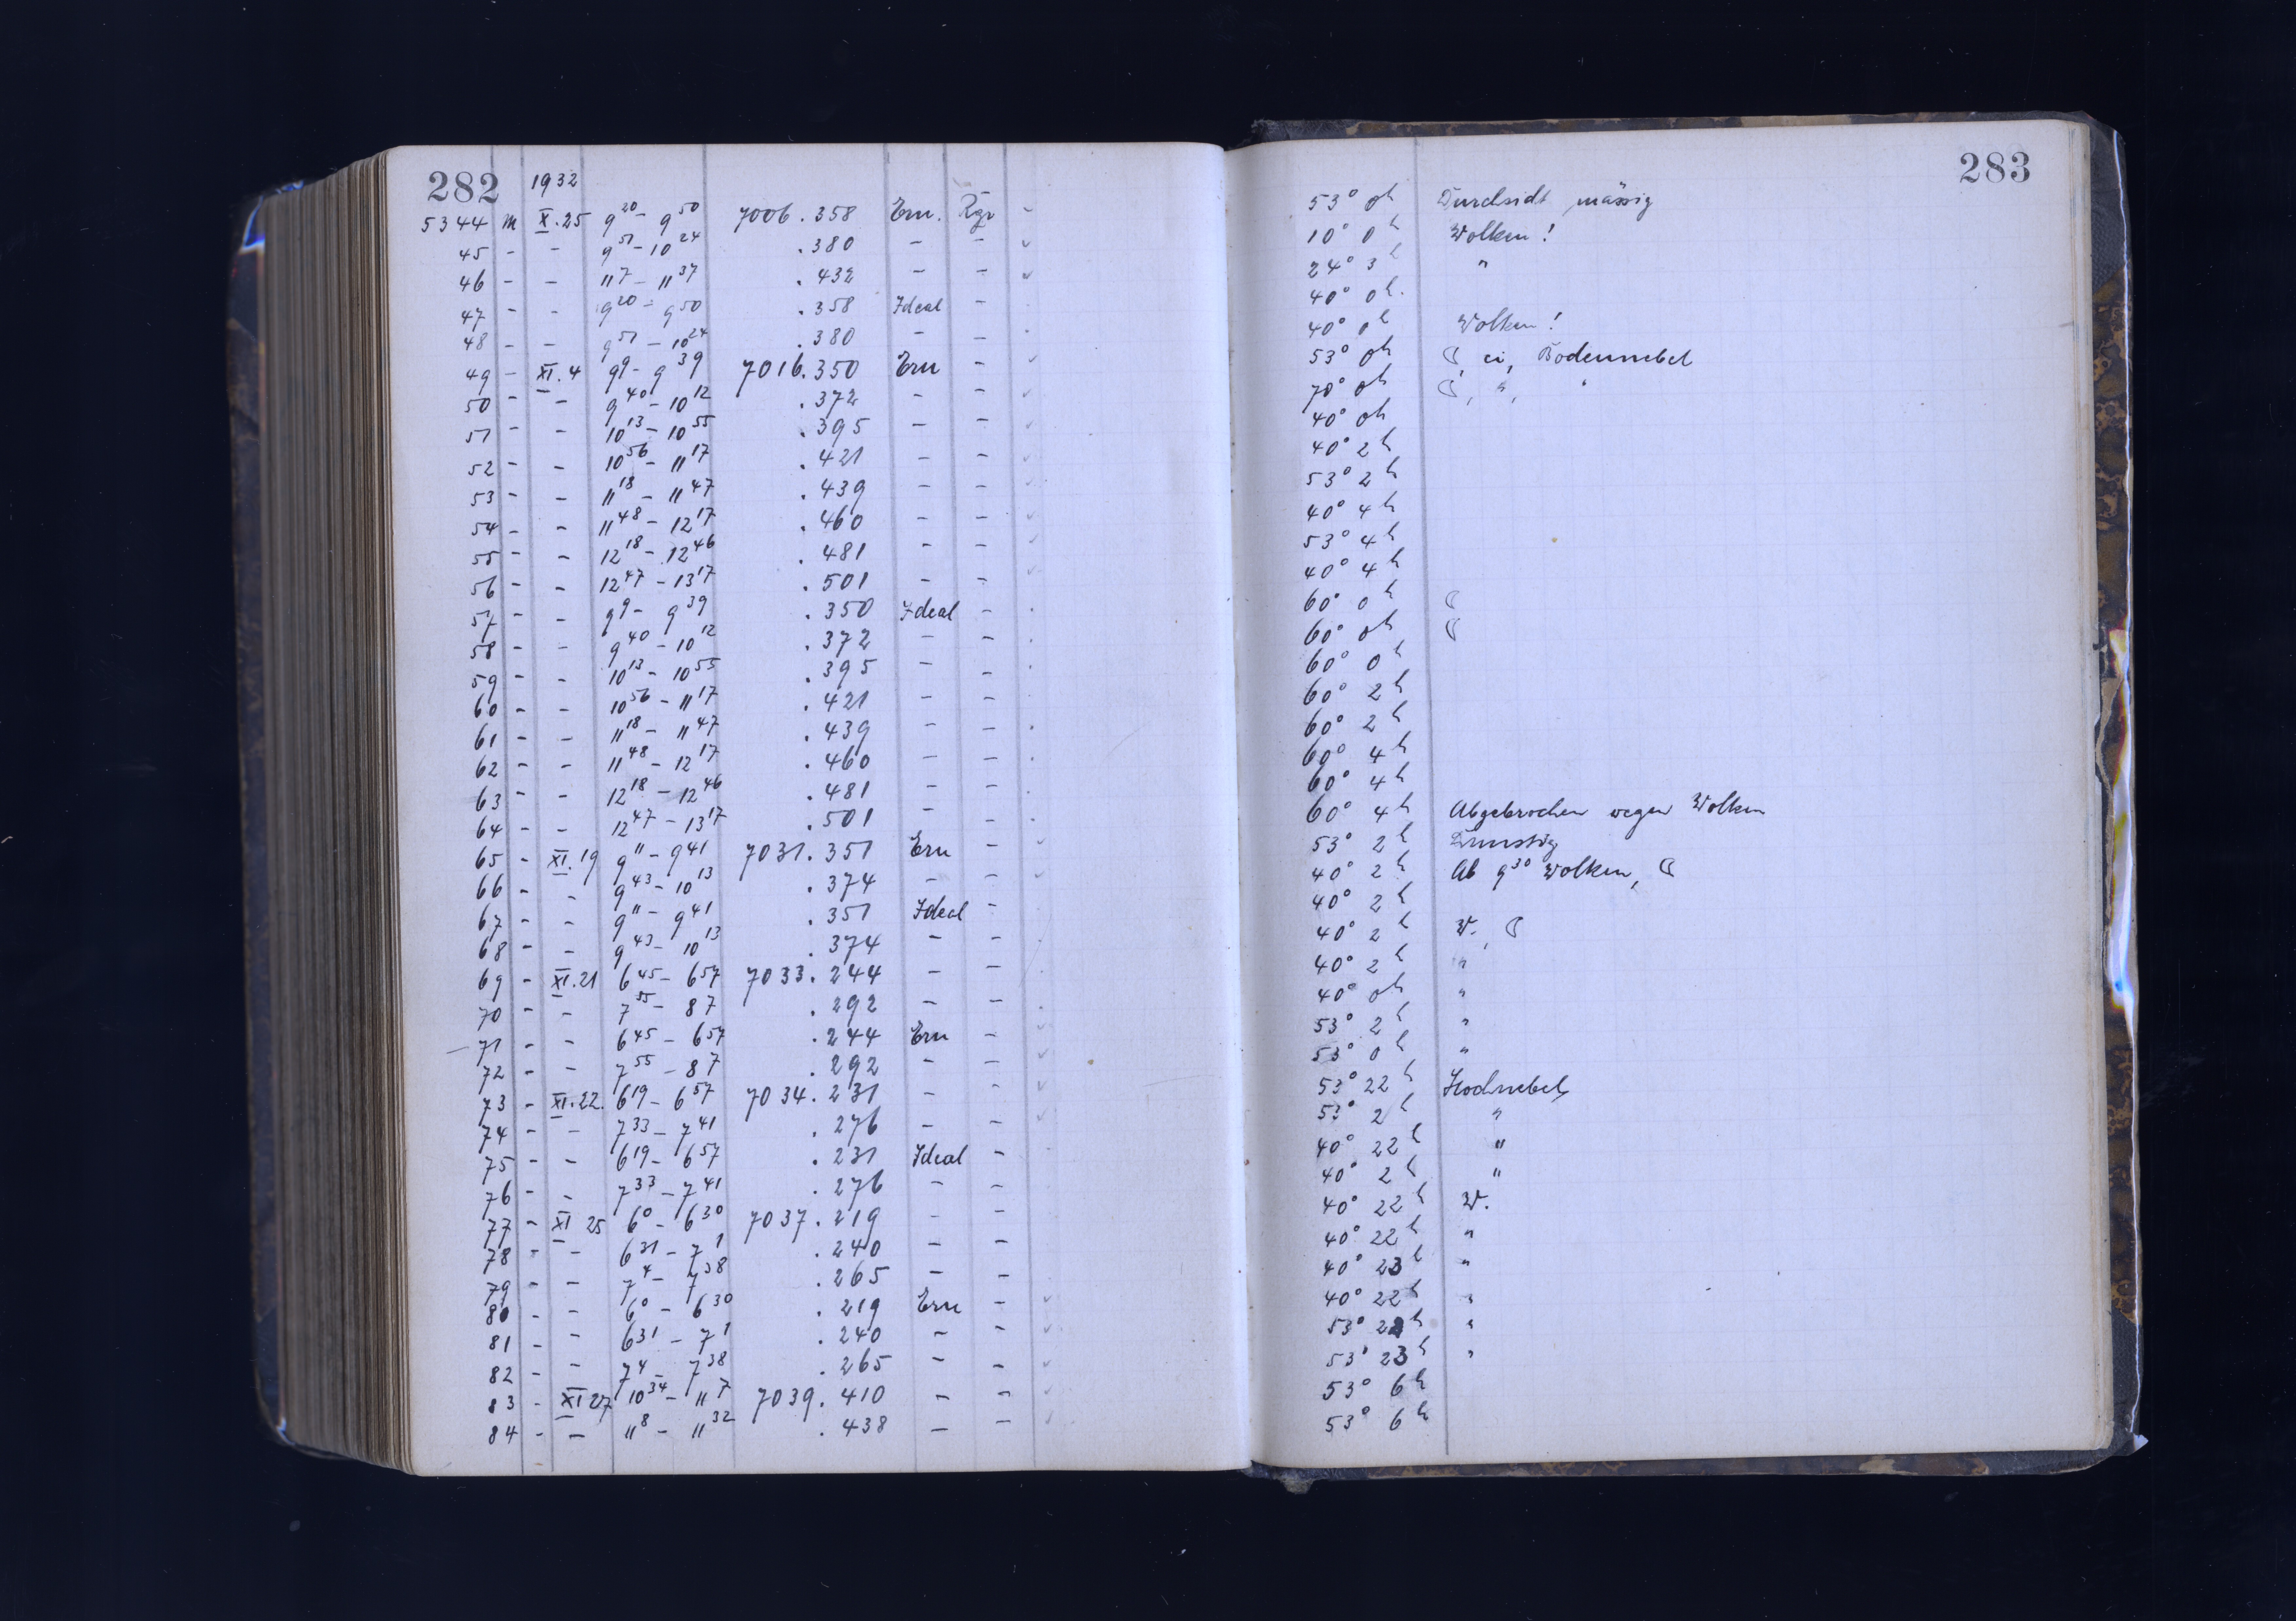 282 1932
5344 M X.25 9²⁰ - 9⁵⁰ 7006.358 Ern. Rgr
45 - - 9⁵¹ - 10²⁴ .380 - -
46 - - 11⁷ - 11³⁷ .432 - -
47 - - 9²⁰ - 9⁵⁰ .358 Ideal -
48 - - 9⁵¹ - 10²⁴ .380 - -
49 - XI.4 9⁹ - 9³⁹ 7016.350 Ern -
50 - - 9⁴⁰ - 10¹² .372 - -
51 - - 10¹³ - 10⁵⁵ .395 - -
52 - - 10⁵⁶ - 11¹⁷ .421 - -
53 - - 11¹⁸ - 11⁴⁷ .439 - -
54 - - 11⁴⁸ - 12¹⁷ .460 - -
55 - - 12¹⁸ - 12⁴⁶ .481 - -
56 - - 12⁴⁷ - 13¹⁷ .501 - -
57 - - 9⁹ - 9³⁹ .350 Ideal -
58 - - 9⁴⁰ - 10¹² .372 - -
59 - - 10¹³ - 10⁵⁵ .395 - -
60 - - 10⁵⁶ - 11¹⁷ .421 - -
61 - - 11¹⁸ - 11⁴⁷ .439 - -
62 - - 11⁴⁸ - 12¹⁷ .460 - -
63 - - 12¹⁸ - 12⁴⁶ .481 - -
64 - - 12⁴⁷ - 13¹⁷ .501 - -
65 - XI.19 9¹¹ - 9⁴¹ 7031.351 Ern -
66 - - 9⁴³ - 10¹³ .374 - -
67 - - 9¹¹ - 9⁴¹ .351 Ideal -
68 - - 9⁴³ - 10¹³ .374 - -
69 - XI.21 6⁴⁵ - 6⁵⁷ 7033.244 - -
70 - - 7⁵⁵ - 8⁷ .292 - -
71 - - 6⁴⁵ - 6⁵⁷ .244 Ern -
72 - - 7⁵⁵ - 8⁷ .292 - -
73 - XI.22. 6¹⁹ - 6⁵⁷ 7034.231 - -
74 - - 7³³ - 7⁴¹ .276 - -
75 - - 6¹⁹ - 6⁵⁷ .231 Ideal -
76 - - 7³³ - 7⁴¹ .276 - -
77 - XI 25 6⁰ - 6³⁰ 7037.219 - -
78 - - 6³¹ - 7¹ .240 - -
79 - - 7⁴ - 7³⁸ .265 - -
80 - - 6⁰ - 6³⁰ .219 Ern -
81 - - 6³¹ - 7¹ .240 - -
82 - - 7⁴ - 7³⁸ .265 - -
83 - XI 27 10³⁴ - 11⁷ 7039.410 - -
84 - - 11⁸ - 11³² .438 - -
283
53° 0ʰ Durchsicht mässig
10° 0ʰ Wolken!
24° 3ʰ "
40° 0ʰ.
40° 0ʰ Wolken!
53° 0ʰ ☾, ci, Bodennebel
70° 0ʰ ☾, ", "
40° 0ʰ
40° 2ʰ
53° 2ʰ
40° 4ʰ
53° 4ʰ
40° 4ʰ
60° 0ʰ ☾
60° 0ʰ ☾
60° 0ʰ
60° 2ʰ
60° 2ʰ
60° 4ʰ
60° 4ʰ
60° 4ʰ Abgebrochen wegen Wolken
53° 2ʰ Dunstig
40° 2ʰ Ab 9³⁰ Wolken, ☾
40° 2ʰ
40° 2ʰ W., ☾
40° 2ʰ "
40° 0ʰ "
53° 2ʰ "
53° 0ʰ "
53° 22ʰ Hochnebel
53° 2ʰ "
40° 22ʰ "
40° 2ʰ "
40° 22ʰ W.
40° 22ʰ "
40° 23ʰ "
40° 22ʰ "
53° 22ʰ "
53° 23ʰ "
53° 6ʰ
53° 6ʰ